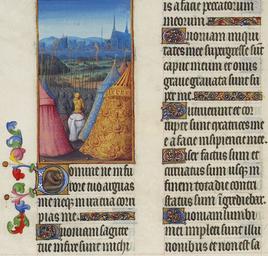 Domine ne in fu
rore tuo arguas
me neqz in ira tua corri
pias me
Quoniam sagitte
tue infixe sunt michi
is a facie peccatorum
meorum
Quoniam iniqui
tates mee supergresse sunt
caput meum et onus
grave gravata sunt su
per me
Putruerunt et cor
rupte sunt cicatrices me
e a facie insipiencie mee
Miser factus sum et
curvatus sum usqz in
finem tota die contri
status sum i gredieba
Quoniam lumbi
mei impleti sunt illu
sionibus et non est sa